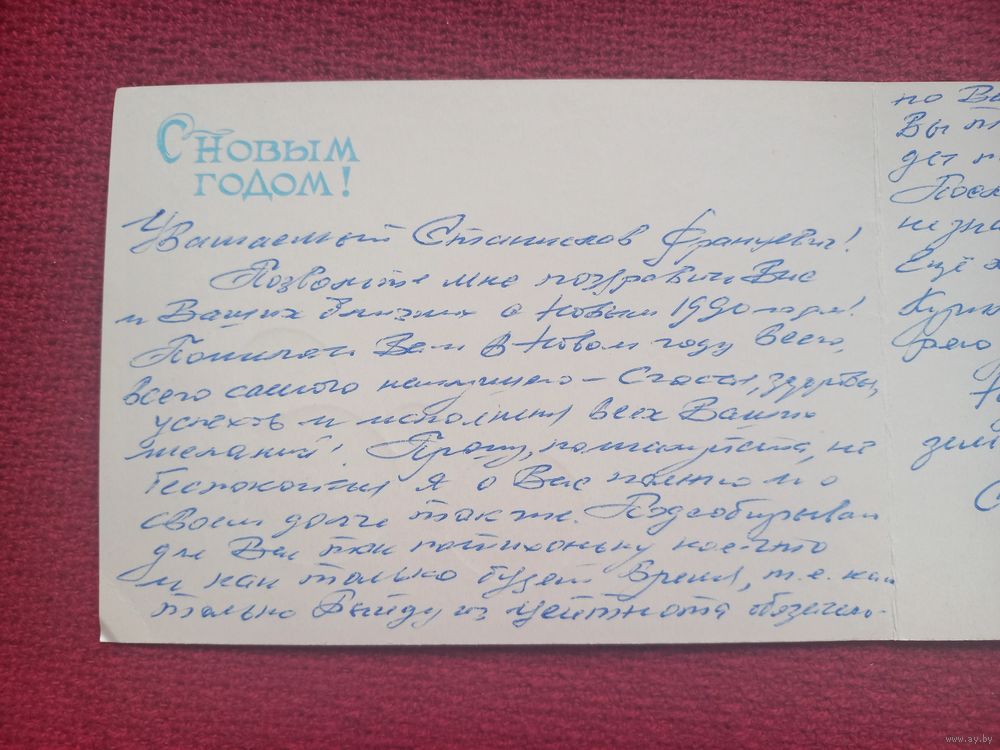 С Новым
годом!
Уважаемый Станислав Францевич!
Позвольте мне поздравить Вас
и Ваших близких с Новым 1990 годом!
Пожелать Вам в Новом году всего,
всего самого наилучшего – счастья, здоровья,
успехов и исполнения всех Ваших
желаний! Прошу, пожалуйста, не
беспокоиться я о Вас помню и о
своем долге также. Подсобирываю
для Вас так потихоньку кое-что
и как только будет время, т.е. как
только выйду из цейтнота обязатель-
по Ва
Вы п
дет т
Посл
не зна
Ещё х
рею
зем
С
www.ay.by